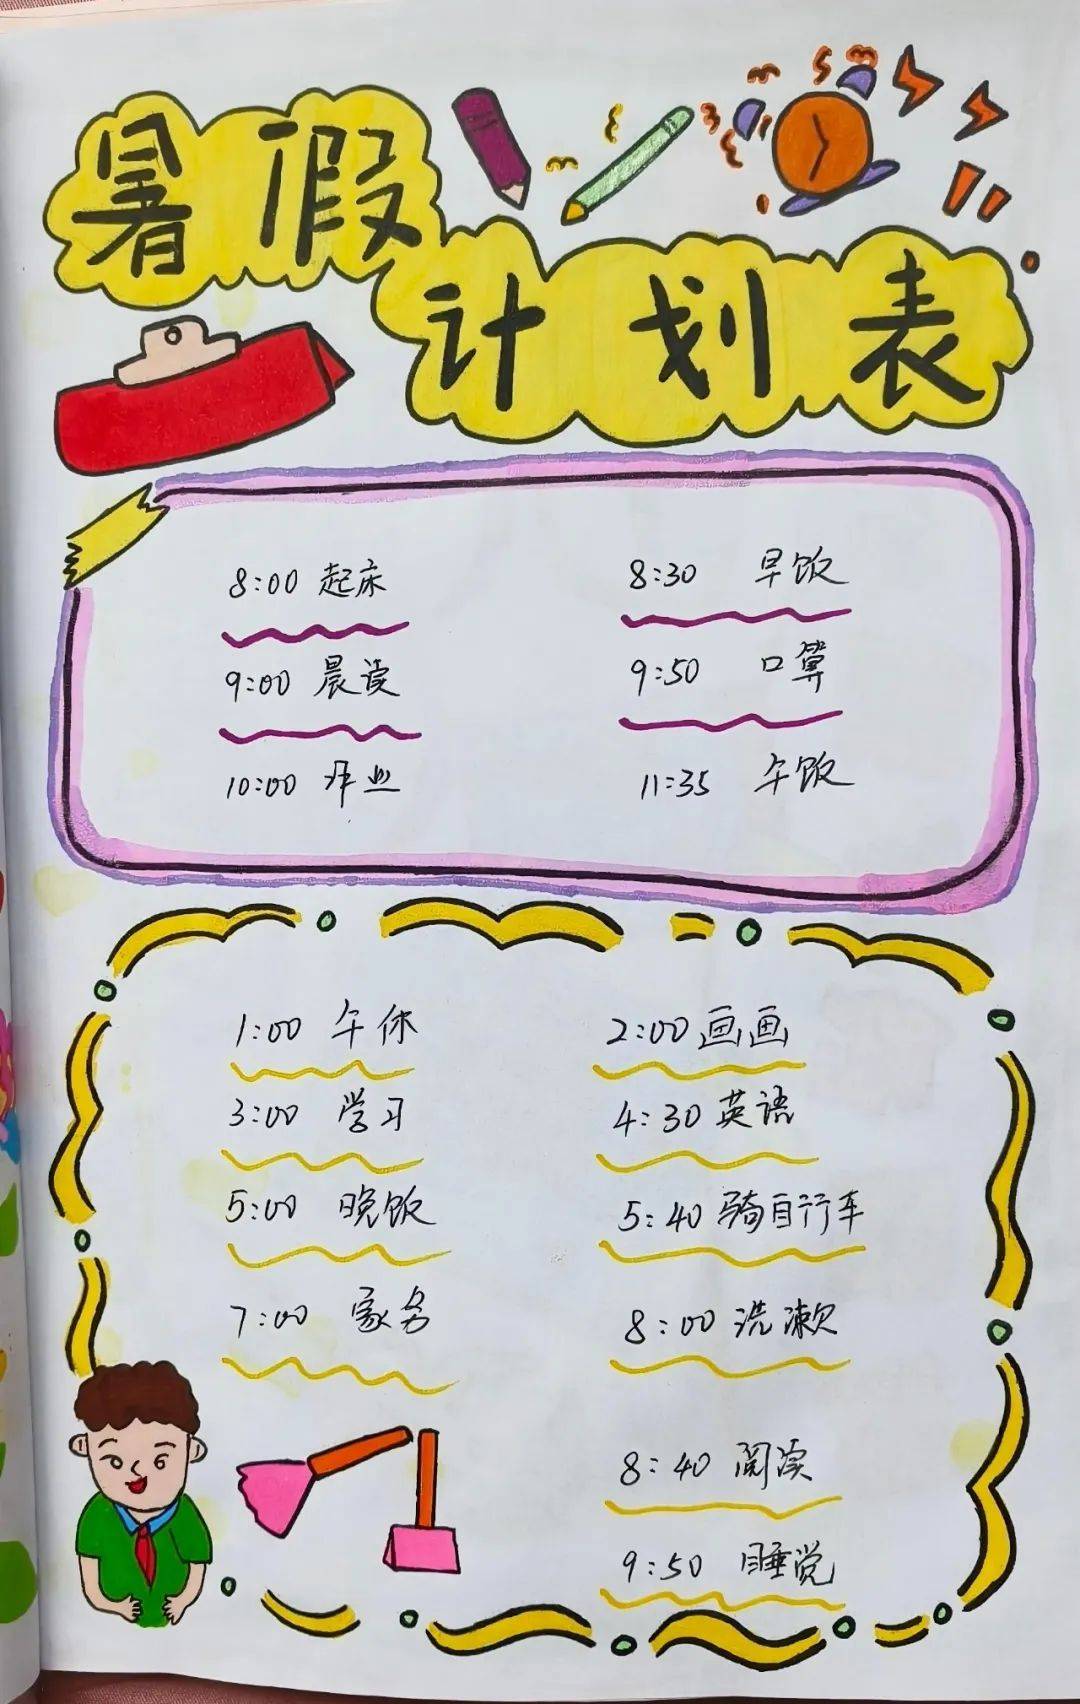 暑假
计划表
8:00 起床 8:30 早饭
9:00 晨读 9:50 口算
10:00 作业 11:35 午饭
1:00 午休 2:00 画画
3:00 学习 4:30 英语
5:00 晚饭 5:40 骑自行车
7:00 家务 8:00 洗漱
8:40 阅读
9:50 睡觉